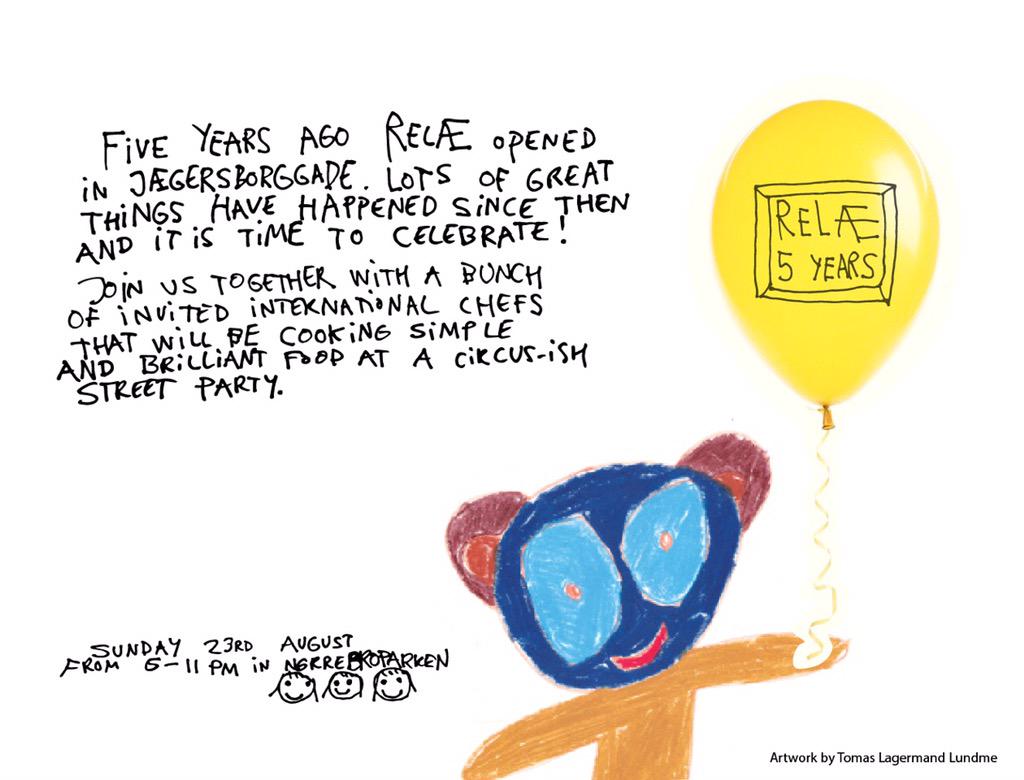 FIVE YEARS AGO RELÆ OPENED
IN JÆGERSBORGGADE. LOTS OF GREAT
THINGS HAVE HAPPENED SINCE THEN
AND IT IS TIME TO CELEBRATE!
JOIN US TOGETHER WITH A BUNCH
OF INVITED INTERNATIONAL CHEFS
THAT WILL BE COOKING SIMPLE
AND BRILLIANT FOOD AT A CIRCUS-ISH
STREET PARTY.
RELÆ
5 YEARS
SUNDAY 23RD AUGUST
FROM 6-11 PM IN
Artwork by Tomas Lagermand Lundme